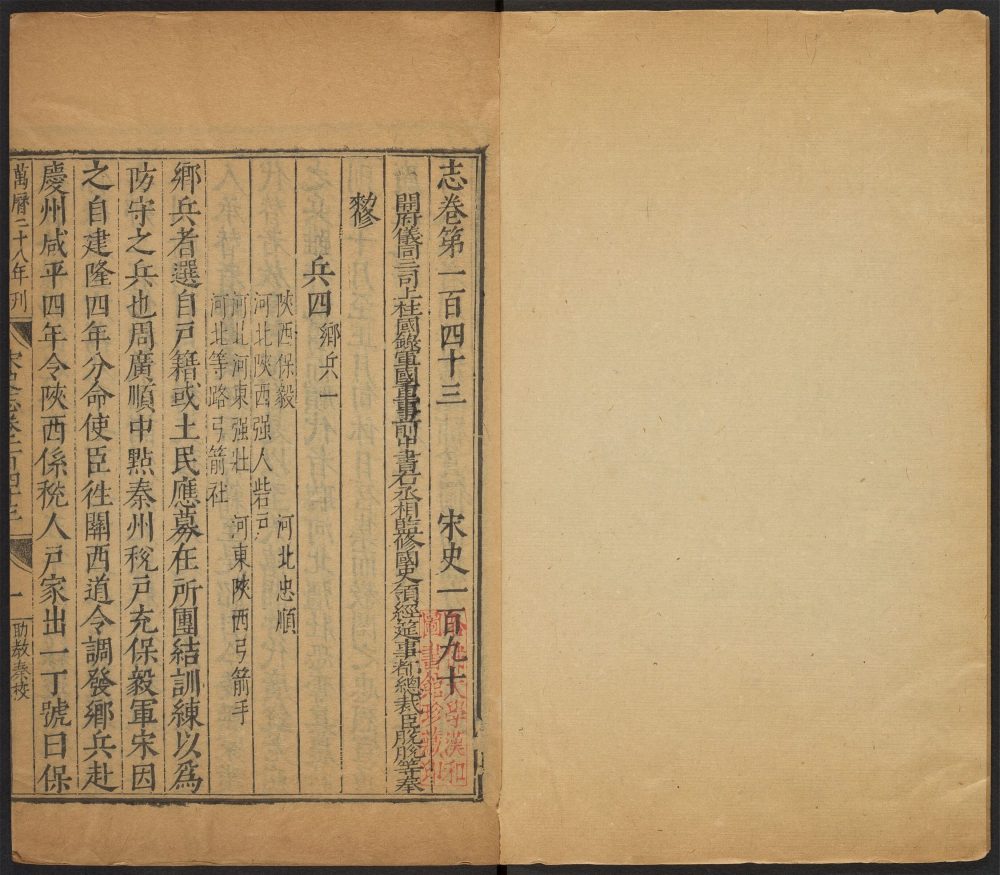 志卷第一百四十三 宋史一百九十
開府儀同三司上柱國錄軍國重事前中書右丞相監修國史領經筵事都總裁臣脫脫等奉
敕修
兵四 鄉兵一
陝西保毅 河北忠順
河北陝西强人砦戶
河北河東强壯 河東陝西弓箭手
河北等路弓箭社
鄉兵者選自戸籍或土民應募在所團結訓練以爲
防守之兵也周廣順中㸃秦州稅戸充保毅軍宋因
之自建隆四年分命使臣徃關西道令調發鄉兵赴
慶州咸平四年令陜西係稅人戸家出一丁號曰保
萬曆二十八年刊
宋史志卷一百四十三
一
助教秦校
哈佛大學漢和
圖書館珍藏印